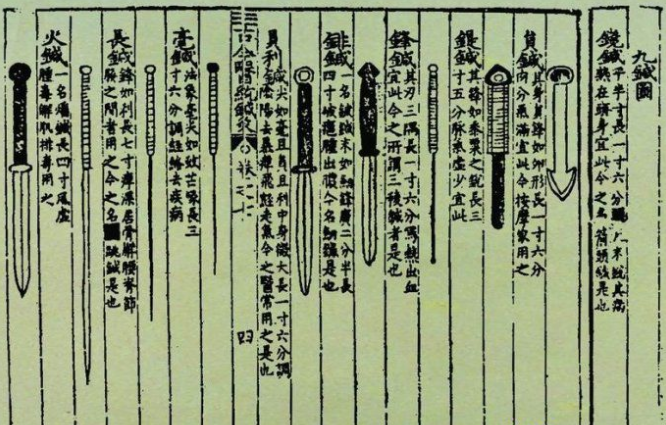 九鍼圖
鑱鍼平半寸長一寸六分大末銳其病
熱在頭身宜此今之名箭頭鍼是也
員鍼其身員鋒如卵形長一寸六分
肉分氣滿宜此今按摩家用之
鍉鍼其鋒如黍粟之銳長三
寸五分脉氣虛少宜此
鋒鍼其刃三隅長一寸六分瀉熱出血
宜此今之所謂三稜鍼者是也
鍼一名鍼末如劍鋒廣二分半長
四寸破癰腫出膿今名劍鍼是也
員利鍼尖如氂且員且利中身微大長一寸六分調
陰陽去暴痺飛經走氣今之醫常用之是也
古今醫統
四
毫鍼法象毫尖如蚊芒喙長三
寸六分調經絡去疾病
長鍼鋒如利長七寸痺深居骨解腰脊節
腠之間者用之今之名跳鍼是也
火鍼一名燔鍼長四寸風虛
腫毒解肌排毒用之